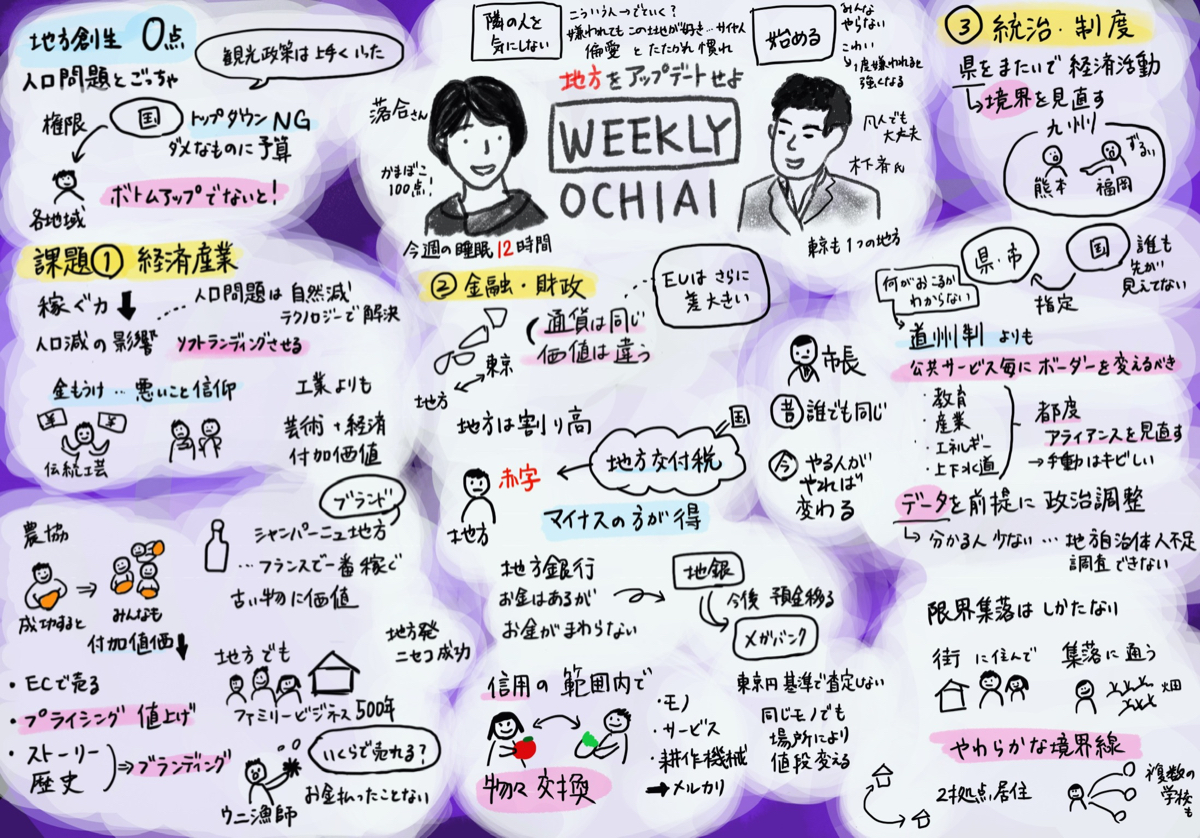 地方創生 0点
観光政策は上手くいった
人口問題とごっちゃ
権限
国
トップダウン NG
ダメなものに予算
各地域
ボトムアップでないと!
隣の人を
気にしない
こういう人→でていく?
嫌われてもこの土地が好き…サイヤ人
偏愛 と たたかれ慣れ
始める
みんな
やらない
こわい
↳1度嫌われると
強くなる
地方をアップデートせよ
WEEKLY
OCHIAI
落合さん
かまぼこ
100点!
今週の睡眠 12時間
凡人でも
大丈夫
木下斉氏
東京も1つの地方
③ 統治・制度
県をまたいで経済活動
↳境界を見直す
九州
ずるい
熊本
福岡
課題① 経済産業
稼ぐ力⬇
人口問題は自然減
テクノロジーで解決
人口減の影響
ソフトランディングさせる
金もうけ…悪いこと信仰
¥
¥
伝統工芸
工業よりも
芸術+経済
付加価値
農協
成功すると
⇒
みんなも
付加価値⬇
ブランド
シャンパーニュ地方
…フランスで一番稼ぐ
古い物に価値
・ECで売る
・プライシング 値上げ
・ストーリー
歴史
⇒ブランディング
地方でも
地方発
ニセコ成功
ファミリービジネス 500年
いくらで売れる?
お金払ったことない
ウニ漁師
② 金融・財政
EUはさらに
差大きい
通貨は同じ
価値は違う
東京
地方
地方は割り高
国
地方交付税
赤字
地方
マイナスの方が得
地方銀行
お金はあるが
お金がまわらない
地銀
今後 預金移る
メガバンク
信用の範囲内で
物々交換
・モノ
・サービス
・耕作機械
➡メルカリ
東京円基準で査定しない
同じモノでも
場所により
値段変える
市長
昔 誰でも同じ
今 やる人が
やれば
変わる
県・市
国
指定
誰も
先が
見えてない
何がおこるか
わからない
道州制 よりも
公共サービス毎にボーダーを変えるべき
・教育
・産業
・エネルギー
・上下水道
都度
アライアンスを見直す
→手動はキビしい
データを前提に政治調整
↳分かる人少ない…地方自治体人不足
調査できない
限界集落はしかたない
街に住んで
集落に通う
畑
やわらかな境界線
2拠点居住
複数の
学校
も